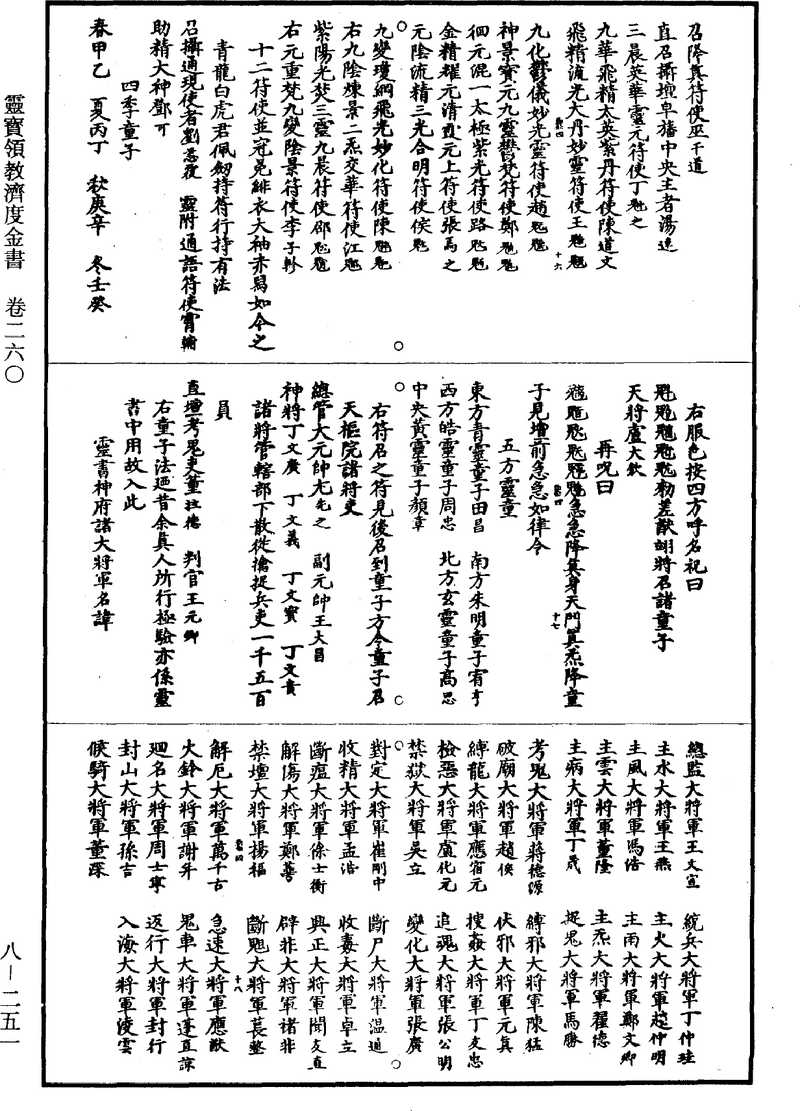 靈寶領教濟度金書　卷二六〇
八－二五一
召降真符使巫千道
直召攝壇阜潘中央主者湯遠
三晨英華靈元符使丁之
九華飛精太英紫丹符使陳道文
飛精流光大丹妙靈符使王
十六
九化鬱儀妙光靈符使趙
神景寶元九靈欝梵符使鄭
徊元混一太極紫光符使路
金精耀元清靈元上符使張禹之
元陰流精三光合明符使侯
九變瓊綱飛光妙化符使陳
右九陰煉景二炁交華符使江
紫陽光焚三靈九晨符使邵
右元重梵九變陰景符使李子
十二符使並冠冕緋衣大袖赤舄如今之
青龍白虎君佩劒持符行持有法
召攝通現使者劉　靈附通語符使霄
助精大神鄧可
四季童子
春甲乙　夏丙丁　秋庚辛　冬壬癸
右服色按四方呼名祝曰
勑差猷翃將召諸童子
天將盧大欽
再呪曰
急急降真身天門真炁降童
十七
子見壇前急急如律令
五方靈童
東方青靈童子田昌　南方朱明童子宥亨
西方皓靈童子周忠　北方玄靈童子高思
中央黃靈童子顏章
右符召之符見後召到童子方令童子召
天樞院諸將吏
總管大元帥　之　副元帥王大昌
神將丁文廣　丁文義　丁文寶　丁文貴
諸將管轄部下散從搶捉兵吏一千五百
員
直壇考鬼吏董　德　判官王元卿
右童子法廼昔余真人所行極驗亦係靈
書中用故入此
靈書神府諸大將軍名諱
總監大將軍王文宣　統兵大將軍丁仲珪
主水大將軍王燕　主火大將軍趙仲明
主風大將軍馮浩　主雨大將軍鄭文卿
主雲大將軍董隆　主炁大將軍翟德
主病大將軍丁晟　捉鬼大將軍馬勝
考鬼大將軍蔣德源　縛邪大將軍陳猛
破廟大將軍趙侯　伏邪大將軍元真
縛龍大將軍應宿元　搜姦大將軍丁文忠
檢惡大將軍盧化元　追魂大將軍張公明
禁獄大將軍吳立　變化大將軍張廣
對定大將軍崔剛中　斷尸大將軍溫通
收精大將軍孟浩　收毒大將軍卓立
斷瘟大將軍徐士衡　興正大將軍聞文直
解傷大將軍鄭善　辟非大將軍諸非
禁壇大將軍楊福　斷大將軍萇堅
十八
解厄大將軍萬千古　急速大將軍應猷
大鈴大將軍謝弁　鬼車大將軍蓬直諒
廻名大將軍周士寧　返行大將軍封行
封山大將軍孫吉　入海大將軍凌雲
候騎大將軍董深